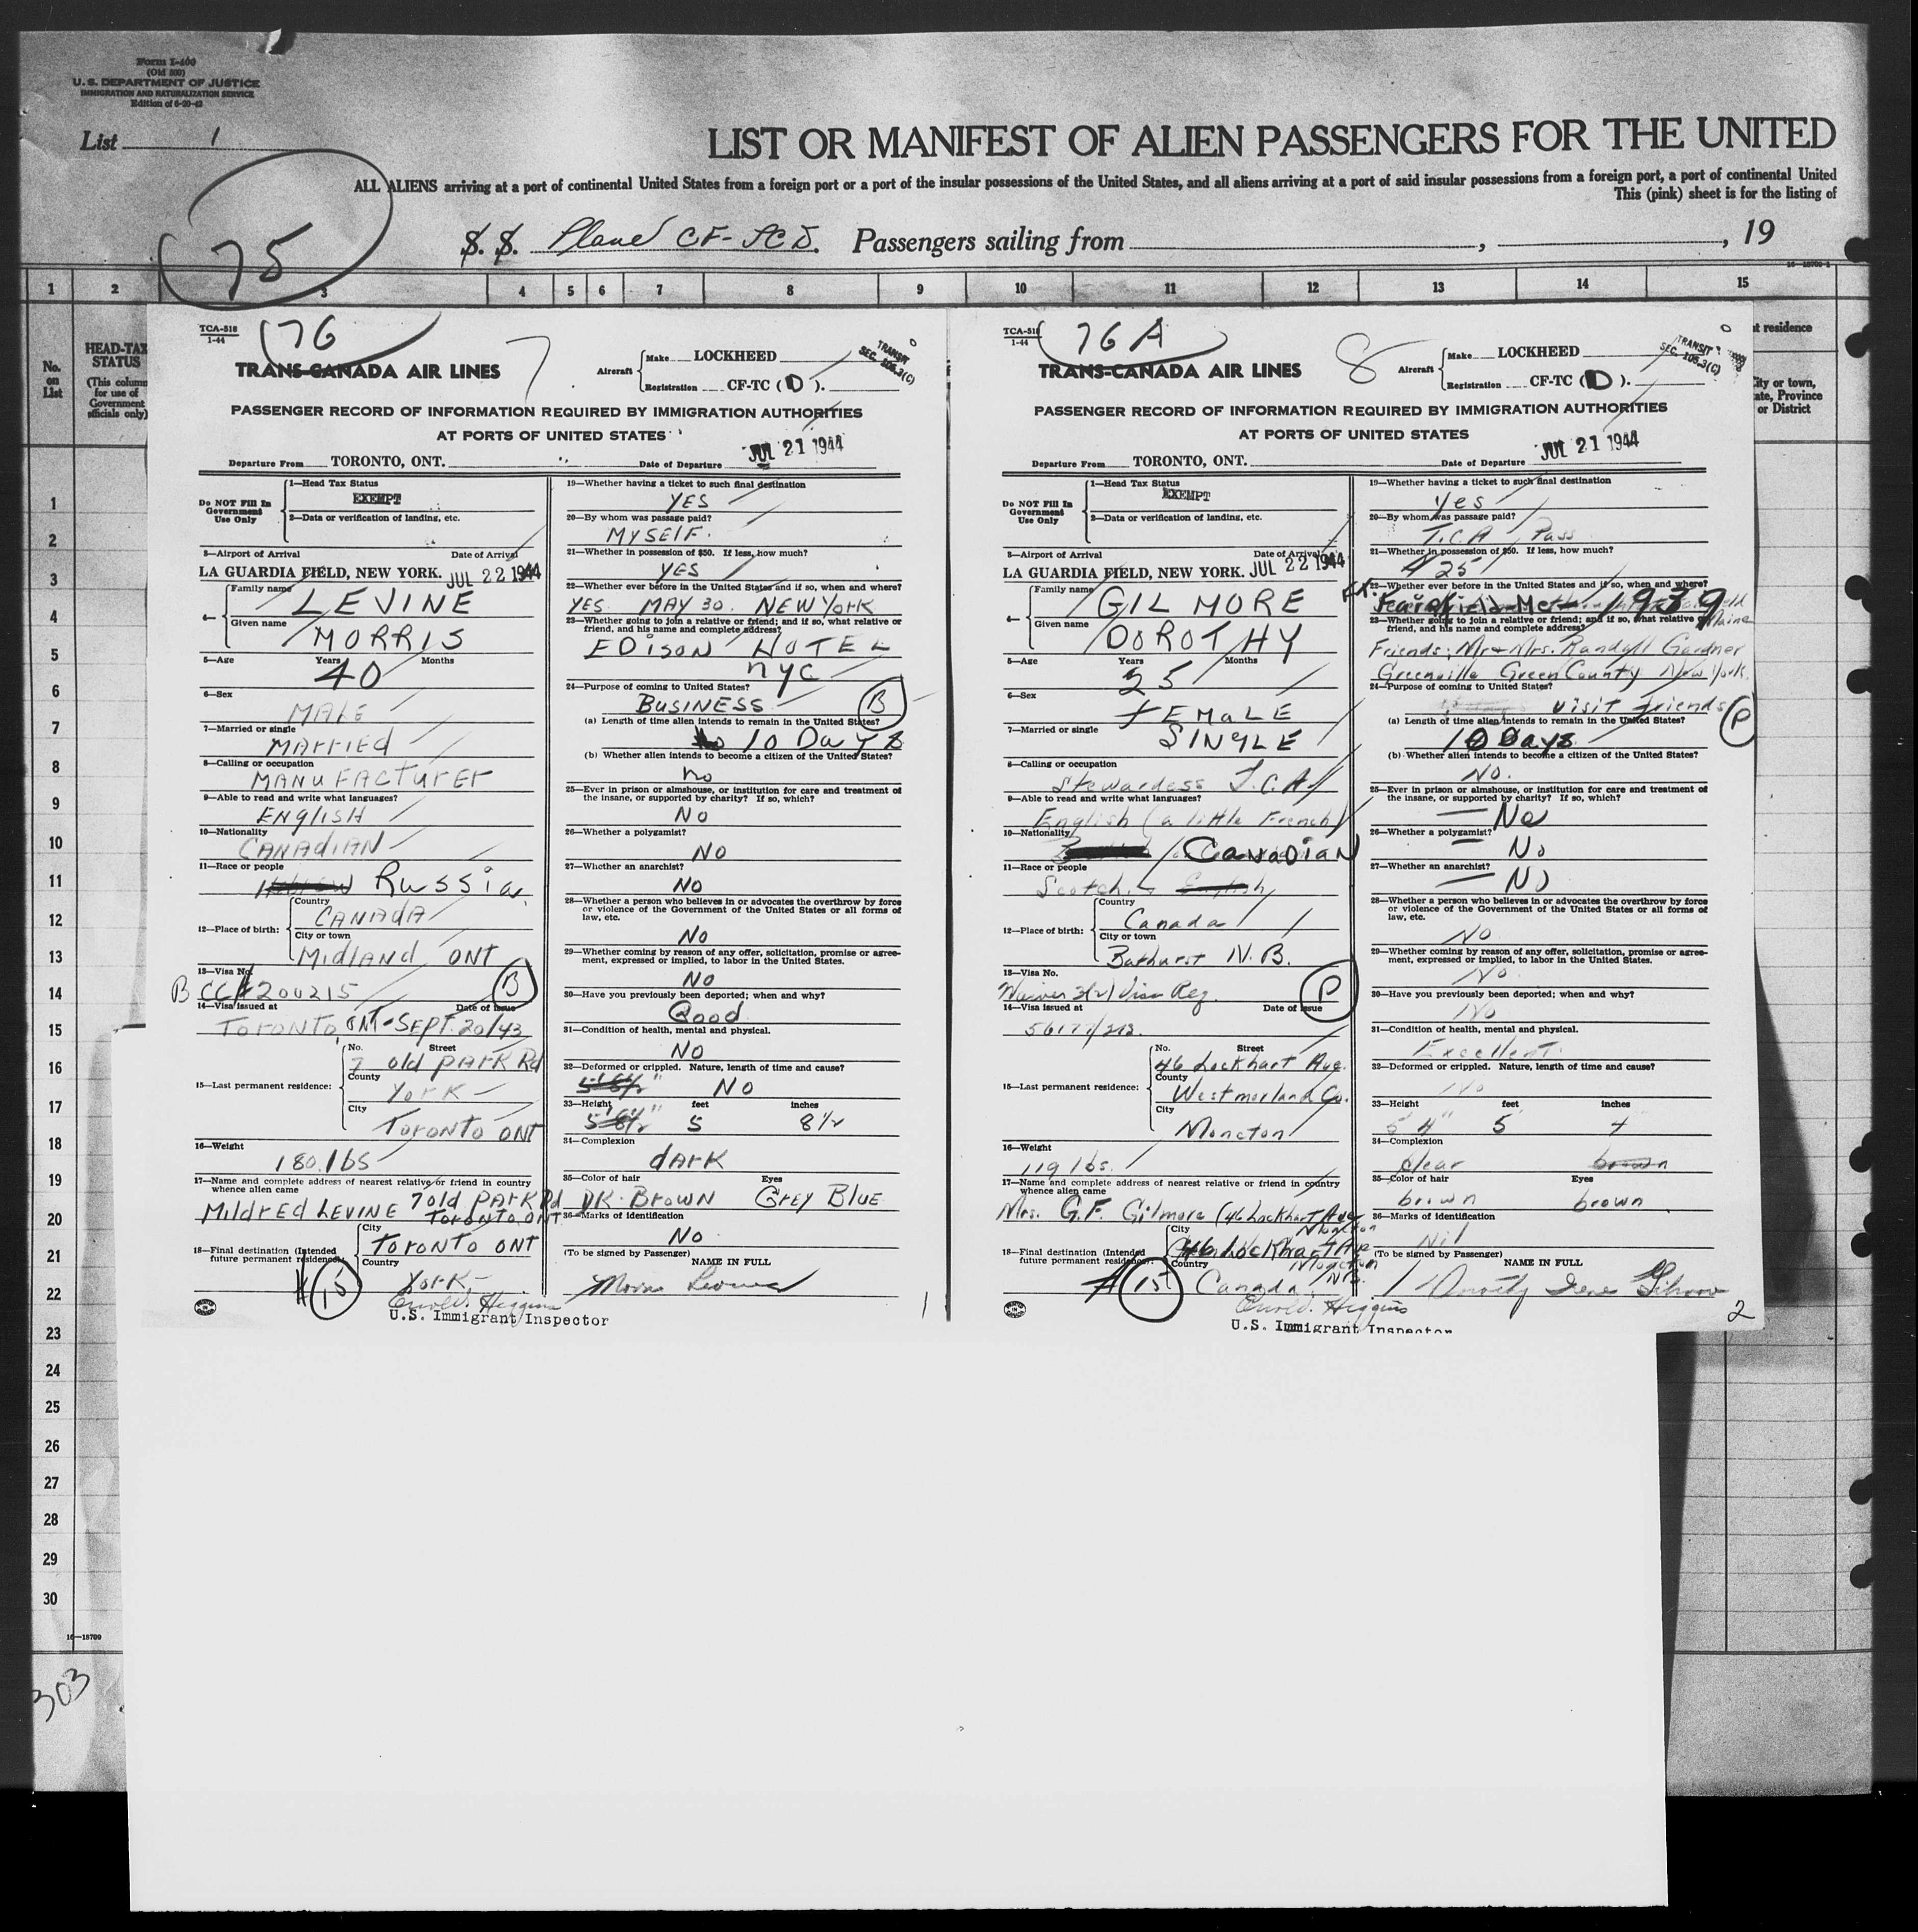 Form I-400
(Old 500)
U. S. DEPARTMENT OF JUSTICE
IMMIGRATION AND NATURALIZATION SERVICE
Edition of 6-20-42
List 1
LIST OR MANIFEST OF ALIEN PASSENGERS FOR THE UNITED
ALL ALIENS arriving at a port of continental United States from a foreign port or a port of the insular possessions of the United States, and all aliens arriving at a port of said insular possessions from a foreign port, a port of continental United
This (pink) sheet is for the listing of
75
S. S. Plane CF-TCD. Passengers sailing from , , 19
1 2 3 4 5 6 7 8 9 10 11 12 13 14 15
No. on List
HEAD-TAX STATUS
(This column for use of Government officials only)
TCA-518
1-44
76
7
TRANS-CANADA AIR LINES
Aircraft
Make LOCKHEED
Registration CF-TC (D).
TRANSIT
SEC. 105.3(C)
PASSENGER RECORD OF INFORMATION REQUIRED BY IMMIGRATION AUTHORITIES
AT PORTS OF UNITED STATES
Departure From TORONTO, ONT. Date of Departure JUL 21 1944
Do NOT Fill In
Government
Use Only
1—Head Tax Status
EXEMPT
2—Data or verification of landing, etc.
3—Airport of Arrival Date of Arrival
LA GUARDIA FIELD, NEW YORK. JUL 22 1944
4—
Family name LEVINE
Given name MORRIS
5—Age Years Months
40
6—Sex
MALE
7—Married or single
MARRIED
8—Calling or occupation
MANUFACTURER
9—Able to read and write what languages?
ENGLISH
10—Nationality
CANADIAN
11—Race or people
Hebrew Russia
12—Place of birth:
Country
CANADA
City or town
MIDLAND ONT
13—Visa No.
B CC#200215 B
14—Visa issued at Date of Issue
TORONTO, ONT- SEPT. 20/43
15—Last permanent residence:
No. Street
7 old PARK Rd
County
YORK
City
TORONTO ONT
16—Weight
180 lbs
17—Name and complete address of nearest relative or friend in country whence alien came
MILDRED LEVINE 7 old PARK Rd
TORONTO ONT
18—Final destination (Intended future permanent residence:
City
TORONTO ONT
Country
YORK
15
U.S. Immigrant Inspector
19—Whether having a ticket to such final destination
YES
20—By whom was passage paid?
MYSELF.
21—Whether in possession of $50. If less, how much?
YES
22—Whether ever before in the United States and if so, when and where?
YES MAY 30. NEW YORK
23—Whether going to join a relative or friend; and if so, what relative or
friend, and his name and complete address?
EDISON HOTEL
NYC
24—Purpose of coming to United States?
BUSINESS B
(a) Length of time alien intends to remain in the United States?
10 DAYS
(b) Whether alien intends to become a citizen of the United States?
no
25—Ever in prison or almshouse, or institution for care and treatment of
the insane, or supported by charity? If so, which?
NO
26—Whether a polygamist?
NO
27—Whether an anarchist?
NO
28—Whether a person who believes in or advocates the overthrow by force
or violence of the Government of the United States or all forms of
law, etc.
NO
29—Whether coming by reason of any offer, solicitation, promise or agree-
ment, expressed or implied, to labor in the United States.
NO
30—Have you previously been deported; when and why?
Good
31—Condition of health, mental and physical.
NO
32—Deformed or crippled. Nature, length of time and cause?
5' 8½" NO
33—Height feet inches
5' 8½" 5 8½
34—Complexion
dARK
35—Color of hair Eyes
DK. BROWN GREY BLUE
36—Marks of identification
No
(To be signed by Passenger) NAME IN FULL
Morris Levine
1
TCA-518
1-44
76 A
8
TRANS-CANADA AIR LINES
Aircraft
Make LOCKHEED
Registration CF-TC (D).
TRANSIT
SEC. 105.3(C)
PASSENGER RECORD OF INFORMATION REQUIRED BY IMMIGRATION AUTHORITIES
AT PORTS OF UNITED STATES
Departure From TORONTO, ONT. Date of Departure JUL 21 1944
Do NOT Fill In
Government
Use Only
1—Head Tax Status
EXEMPT
2—Data or verification of landing, etc.
3—Airport of Arrival Date of Arrival
LA GUARDIA FIELD, NEW YORK. JUL 22 1944
4—
Family name GILMORE
Given name DOROTHY
5—Age Years Months
25
6—Sex
FEMALE
7—Married or single
SINGLE
8—Calling or occupation
Stewardess T.C.A
9—Able to read and write what languages?
English (a little French)
10—Nationality
CANADIAN
11—Race or people
Scotch English
12—Place of birth:
Country
Canada
City or town
Bathurst N.B.
13—Visa No.
Waiver 3(2) Visa Reg. P
14—Visa issued at Date of Issue
15—Last permanent residence:
No. Street
46 Lockhart Ave.
County
Westmorland Co.
City
Moncton
16—Weight
119 lbs.
17—Name and complete address of nearest relative or friend in country whence alien came
Mrs. G.F. Gilmore (46 Lockhart Ave
Moncton
18—Final destination (Intended future permanent residence:
City
46 Lockhart Ave
Moncton
Country
Canada N.B.
15
U.S. Immigrant Inspector
19—Whether having a ticket to such final destination
Yes
20—By whom was passage paid?
T.C.A Pass
21—Whether in possession of $50. If less, how much?
$25
22—Whether ever before in the United States and if so, when and where?
Ft. Fairfield Me- 1939
23—Whether going to join a relative or friend; and if so, what relative or
friend, and his name and complete address?
Friends: Mr & Mrs. Randall Gardner
Greenville Green County New York.
24—Purpose of coming to United States?
visit friends P
(a) Length of time alien intends to remain in the United States?
10 Days
(b) Whether alien intends to become a citizen of the United States?
No.
25—Ever in prison or almshouse, or institution for care and treatment of
the insane, or supported by charity? If so, which?
— No
26—Whether a polygamist?
— No
27—Whether an anarchist?
— No
28—Whether a person who believes in or advocates the overthrow by force
or violence of the Government of the United States or all forms of
law, etc.
No
29—Whether coming by reason of any offer, solicitation, promise or agree-
ment, expressed or implied, to labor in the United States.
No
30—Have you previously been deported; when and why?
No
31—Condition of health, mental and physical.
Excellent.
32—Deformed or crippled. Nature, length of time and cause?
No
33—Height feet inches
5' 4" 5 4
34—Complexion
clear brown
35—Color of hair Eyes
brown brown
36—Marks of identification
Nil
(To be signed by Passenger) NAME IN FULL
Dorothy Irene Gilmore
2
t residence
City or town,
ate, Province
or District
1
2
3
4
5
6
7
8
9
10
11
12
13
14
15
16
17
18
19
20
21
22
23
24
25
26
27
28
29
30
16—18709
303